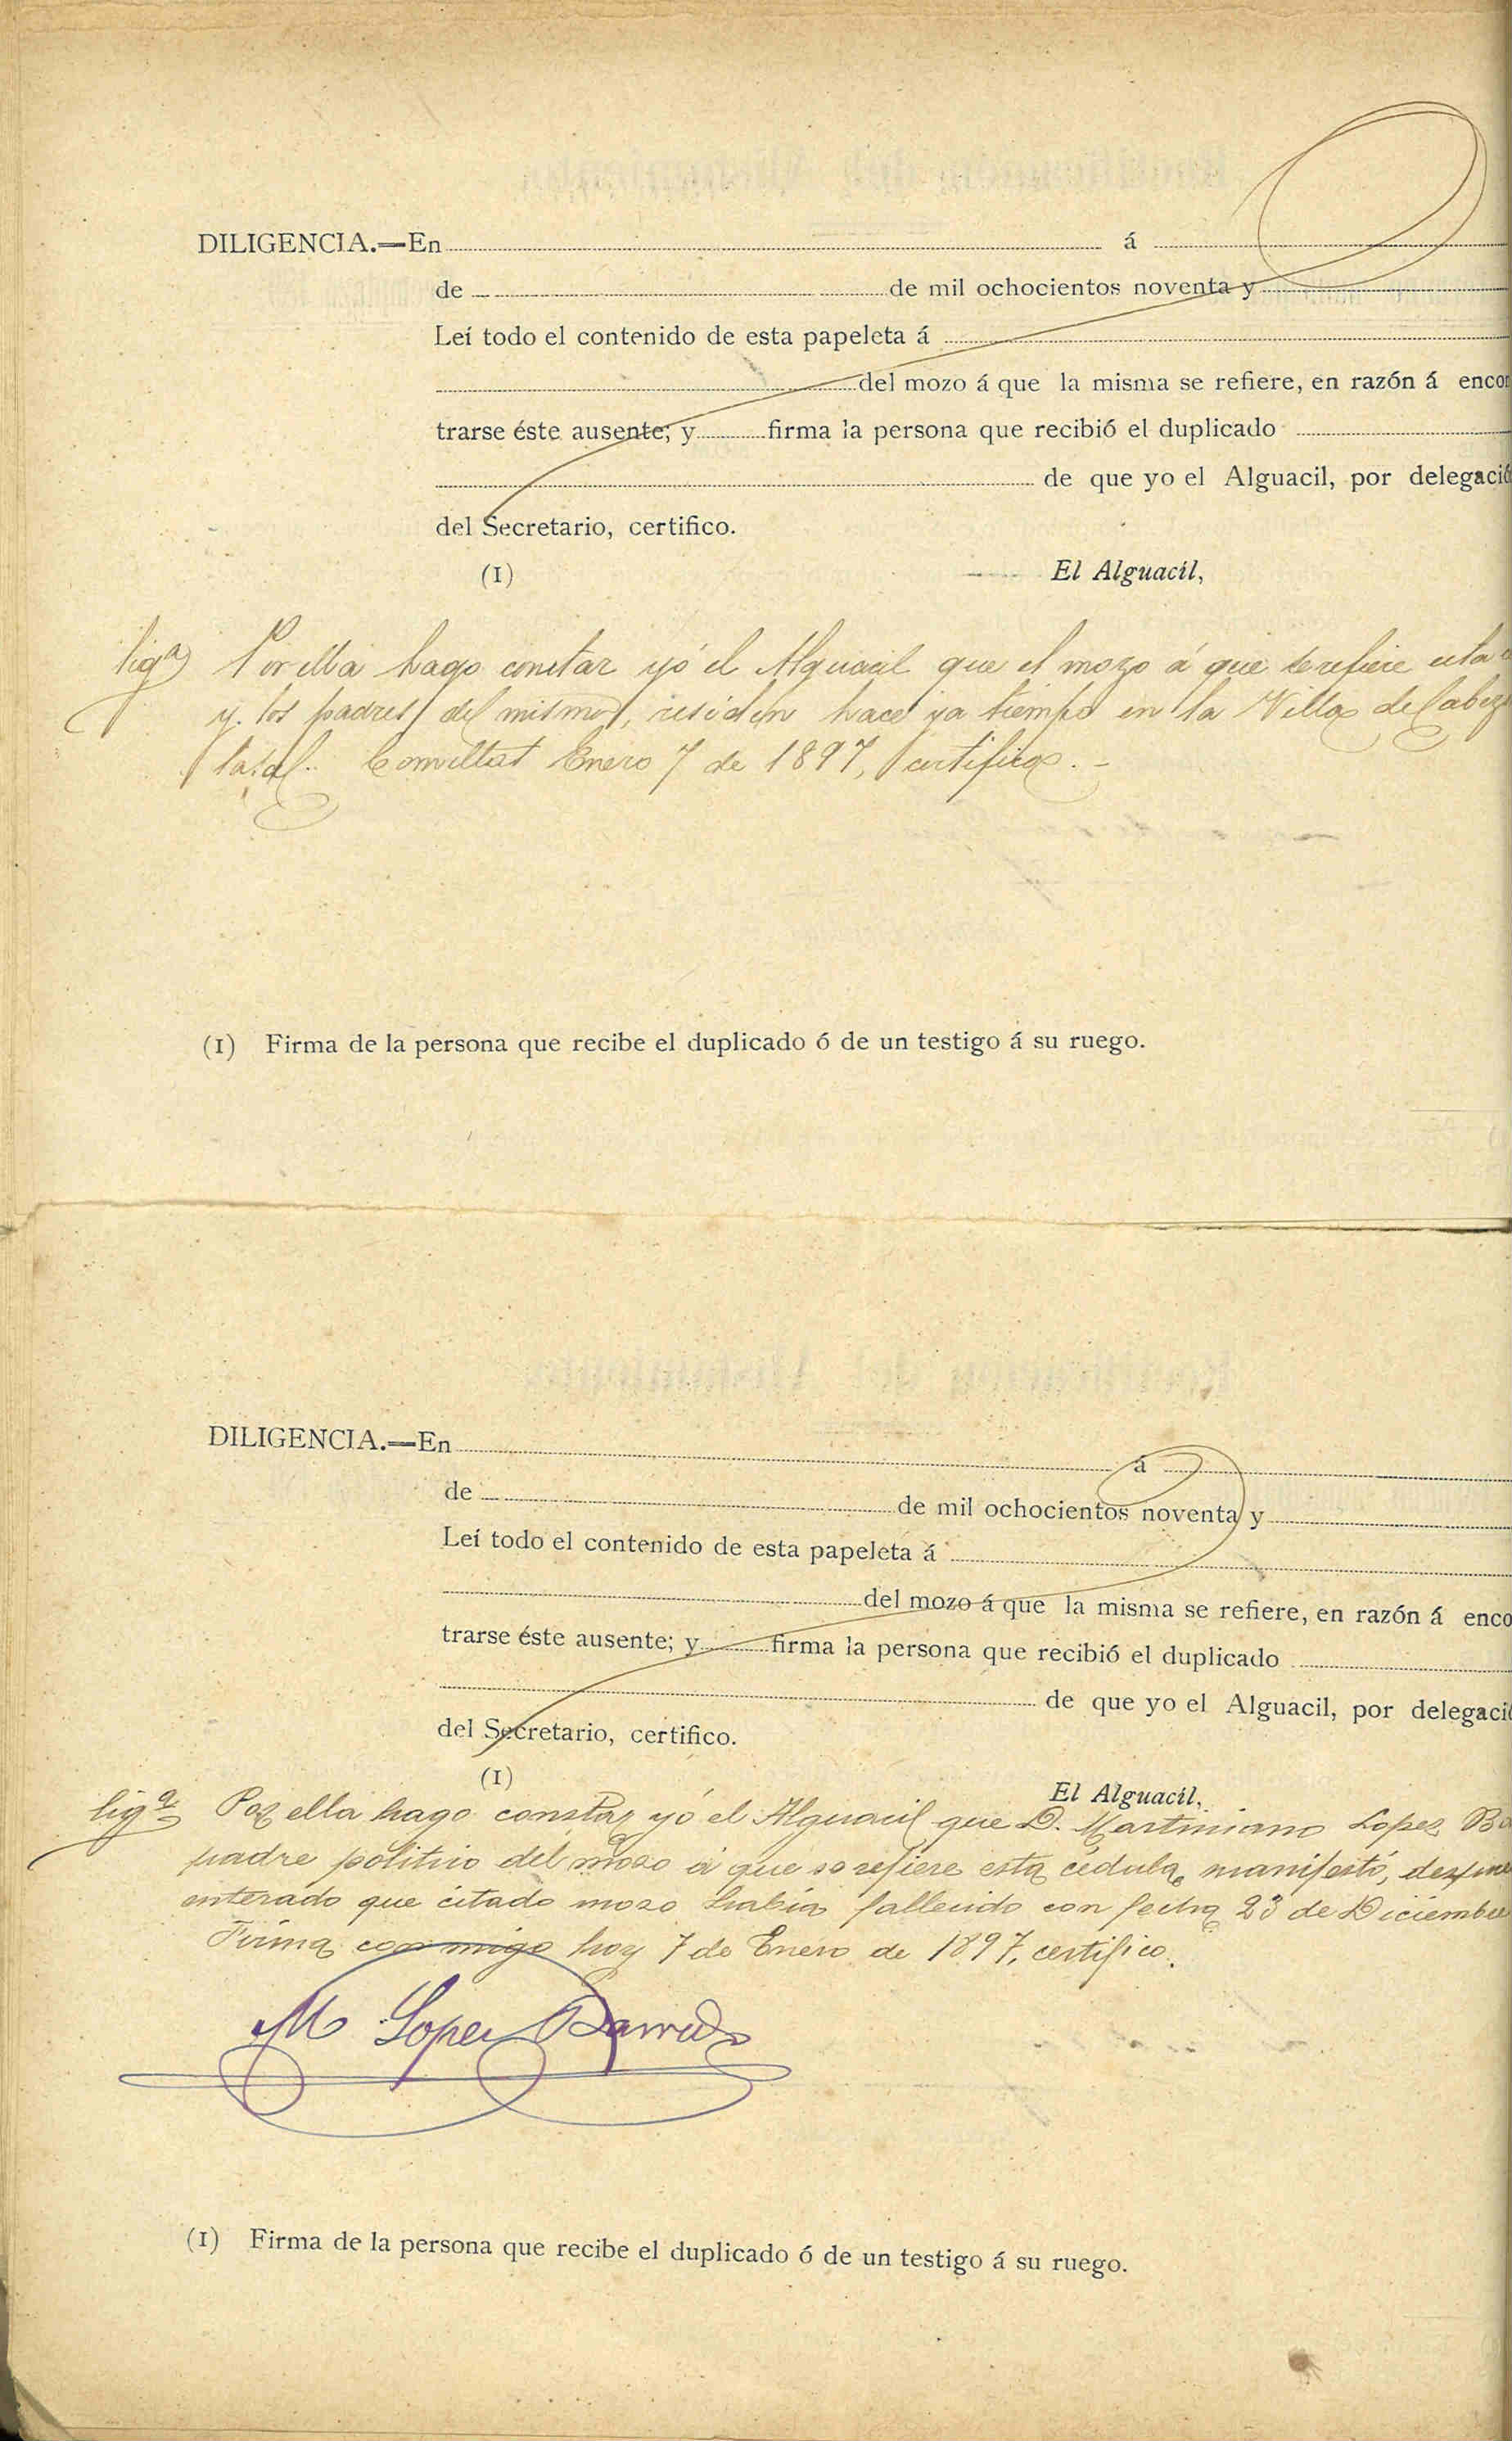 DILIGENCIA.—En á
de de mil ochocientos noventa y
Leí todo el contenido de esta papeleta á
del mozo á que la misma se refiere, en razón á encon
trarse éste ausente; y firma la persona que recibió el duplicado
de que yo el Alguacil, por delegació
del Secretario, certifico.
(1) El Alguacil,
lig.ª Por ella hago constar yó el Alguacil que el mozo á que se refiere esta
y los padres del mismo, residen hace ya tiempo en la Villa de Cabez
la Sal. Comillas Enero 7 de 1897, certifico.-
(1) Firma de la persona que recibe el duplicado ó de un testigo á su ruego.
DILIGENCIA.—En á
de de mil ochocientos noventa y
Leí todo el contenido de esta papeleta á
del mozo á que la misma se refiere, en razón á enco
trarse éste ausente; y firma la persona que recibió el duplicado
de que yo el Alguacil, por delegació
del Secretario, certifico.
(1) El Alguacil,
lig.ª Por ella hago constar yó el Alguacil que D. Martiniano Lopez Ba
padre politico del moso á que se refiere esta cédula, manifestó,
enterado que citado moso había fallecido con fecha 23 de Diciembre
Firma con migo hoy 7 de Enero de 1897, certifico.
M Lopez
(1) Firma de la persona que recibe el duplicado ó de un testigo á su ruego.